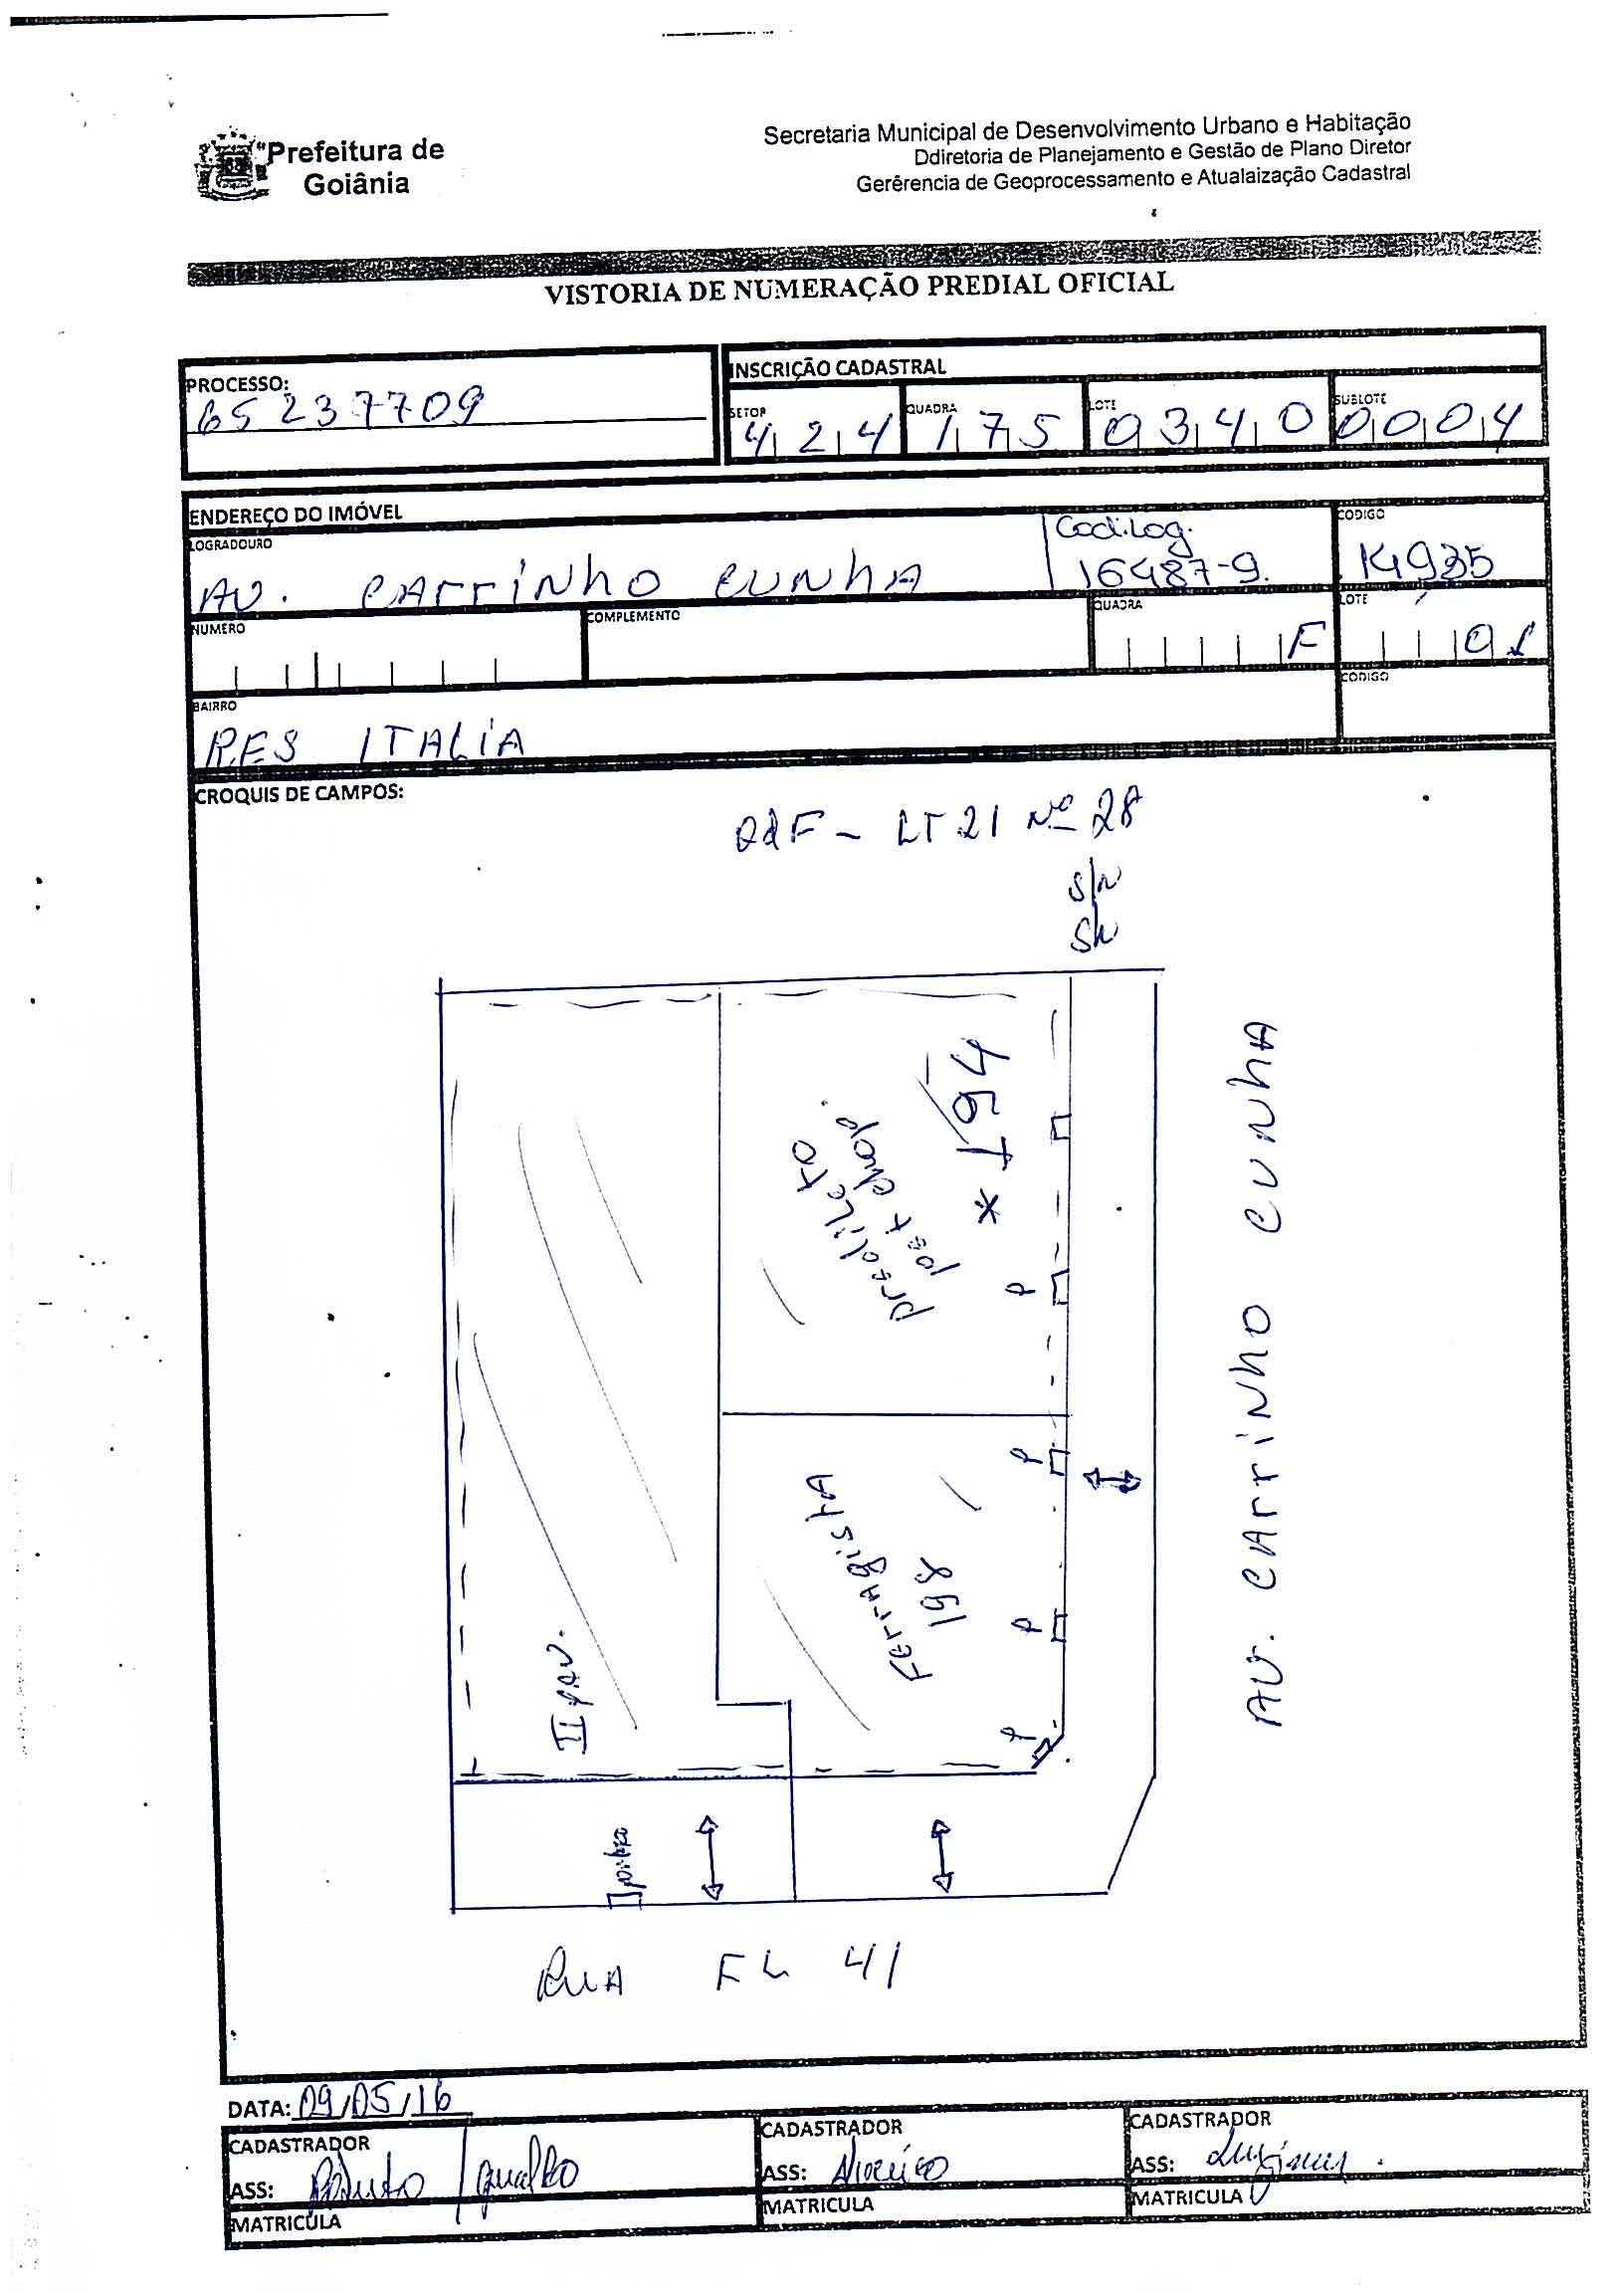 Prefeitura de
Goiânia
Secretaria Municipal de Desenvolvimento Urbano e Habitação
Ddiretoria de Planejamento e Gestão de Plano Diretor
Gerêrencia de Geoprocessamento e Atualaização Cadastral
VISTORIA DE NUMERAÇÃO PREDIAL OFICIAL
PROCESSO:
65237709
INSCRIÇÃO CADASTRAL
SETOR
424
QUADRA
175
LOTE
0340
SUBLOTE
0004
ENDEREÇO DO IMÓVEL
LOGRADOURO
AV. CARRINHO CUNHA
Cod.Log.
16487-9.
CODIGO
14935
NUMERO
COMPLEMENTO
QUADRA
F
LOTE
01
BAIRRO
RES ITALIA
CODIGO
CROQUIS DE CAMPOS:
QdF - LT 21 Nº 28
S/N
S/N
* 194
predileto
pet chop.
P
P
Ferragista
198
P
P
II PAV.
portão
AV. CARRINHO CUNHA
RUA FL 41
DATA: 09/05/16
CADASTRADOR
ASS:
MATRICULA
CADASTRADOR
ASS:
MATRICULA
CADASTRADOR
ASS:
MATRICULA